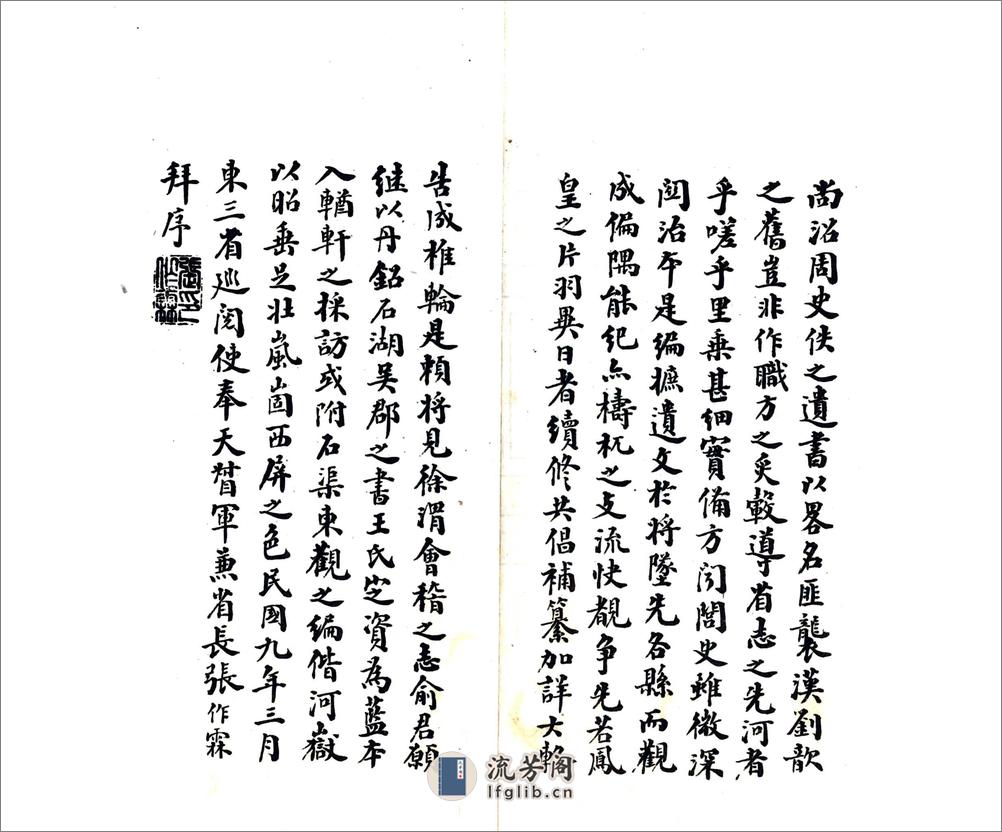 尚沿周史佚之遺書以畧名匪襲漢劉歆
之舊豈非作職方之炙轂導省志之先河者
乎嗟乎里乗甚細實備方闻閭史雖微深
関治本是編摭遺文於將墜先各縣而觀
成偏隅能纪亦檮杌之支流快覩争先若鳳
皇之片羽異日者續修共倡補纂加詳大輅
告成椎輪是頼将見徐渭會稽之志俞君願
继以丹鉛石湖吴郡之書王氏定資為藍本
入輶軒之採訪或附石渠東觀之编偕河嶽
以昭垂足壮嵐崮西屏之色民國九年三月
東三省巡阅使奉天督軍兼省長張作霖
拜序
張作霖印
流芳阁
lfglib.cn